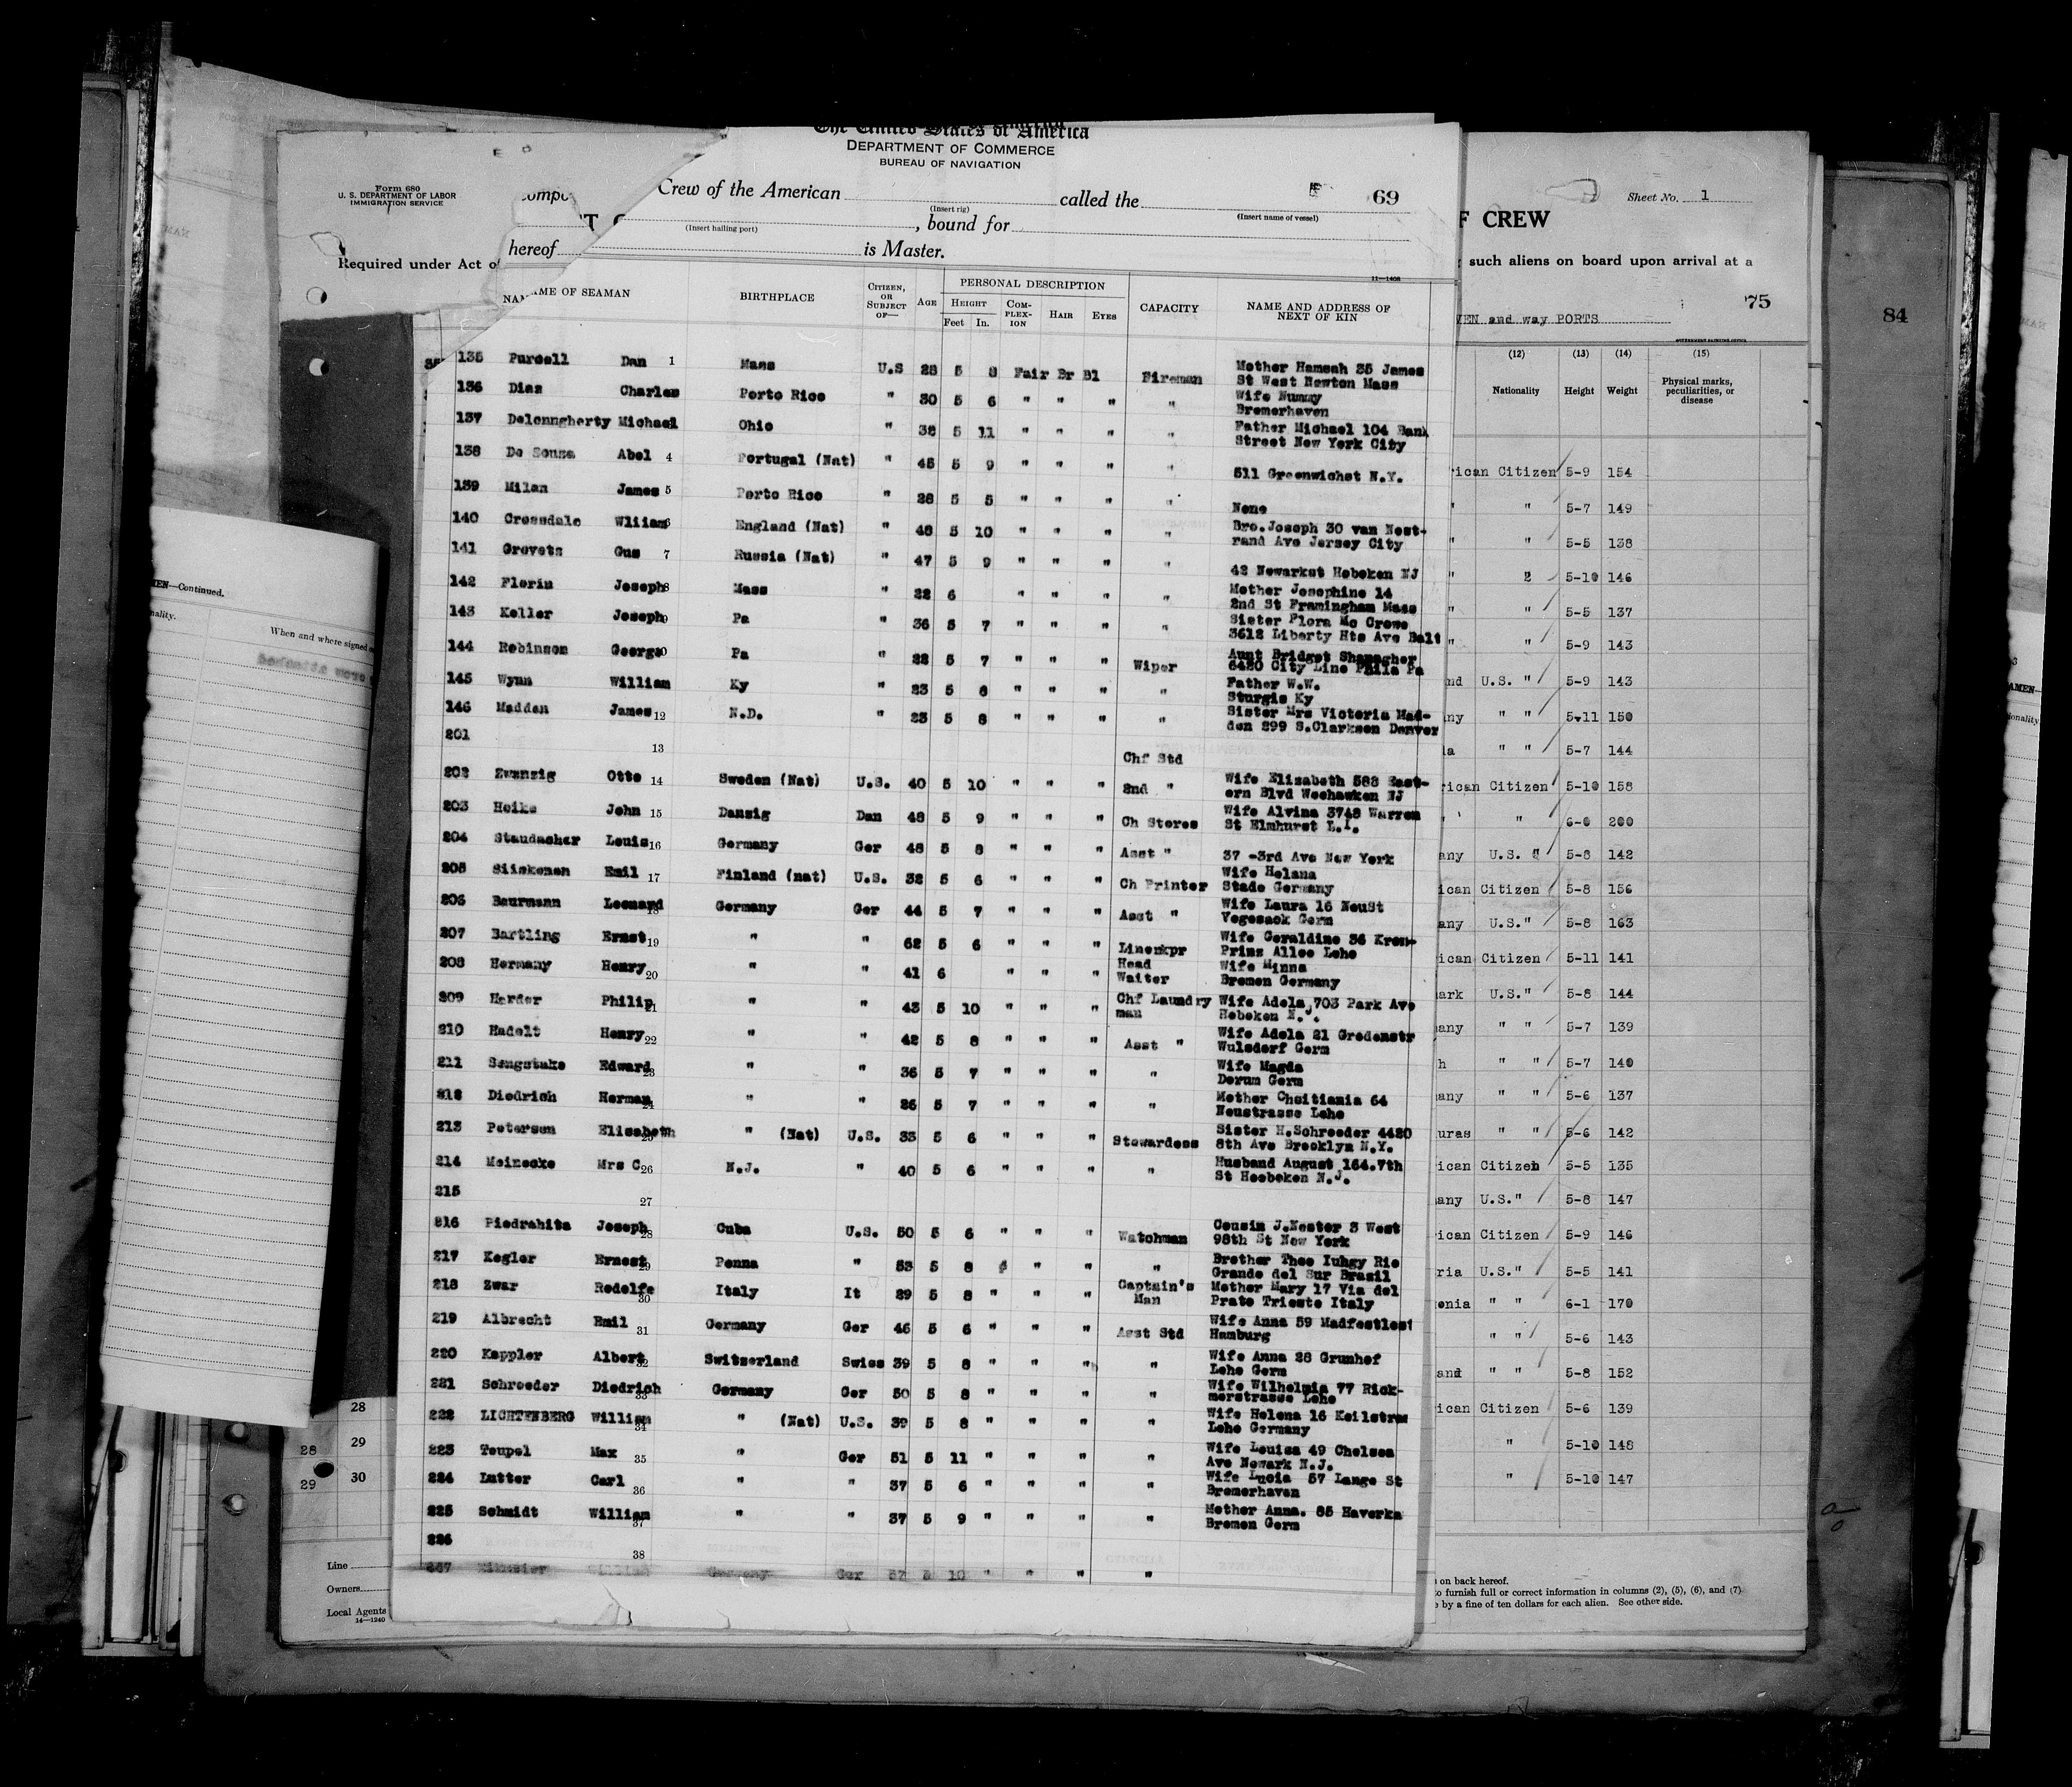 The United States of America
DEPARTMENT OF COMMERCE
BUREAU OF NAVIGATION
Form 680
U. S. DEPARTMENT OF LABOR
IMMIGRATION SERVICE
Crew of the American called the 69
(Insert rig) (Insert name of vessel)
, bound for
(Insert hailing port)
hereof is Master.
Required under Act of
11—1408
NAME OF SEAMAN BIRTHPLACE CITIZEN, OR SUBJECT OF— AGE PERSONAL DESCRIPTION CAPACITY NAME AND ADDRESS OF NEXT OF KIN
HEIGHT COMPLEXION HAIR EYES
Feet In.
135 Purcell Dan 1 Mass U.S 28 5 8 Fair Br Bl Fireman Mother Hannah 35 James
St West Newton Mass
136 Diaz Charles Porto Rico " 30 5 6 " " " " Wife Nummy
Bremerhaven
137 Delonngherty Michael Ohio " 38 5 11 " " " " Father Michael 104 Bank
Street New York City
138 De Sousa Abel 4 Portugal (Nat) " 45 5 9 " " " " 511 Greenwichst N.Y.
139 Milan James 5 Porto Rico " 28 5 5 " " " " None
140 Crossdale Wliiam 6 England (Nat) " 48 5 10 " " " " Bro.Joseph 30 van Nost-
rand Ave Jersey City
141 Grovets Gus 7 Russia (Nat) " 47 5 9 " " " " 42 Newarkst Hoboken NJ
142 Florin Joseph 8 Mass " 22 6 " " " " Mother Josephine 14
2nd St Framingham Mass
143 Keller Joseph 9 Pa " 36 5 7 " " " " Sister Flora Mc Crowe
3612 Liberty Hts Ave Balt
144 Robinson George 10 Pa " 22 5 7 " " " Wiper Aunt Bridget
6420 City Line Phila Pa
145 Wynn William Ky " 23 5 8 " " " " Father W.W.
Sturgis Ky
146 Madden James 12 N.D. " 23 5 8 " " " " Sister Mrs Victoria Mad-
den 299 S.Clarkson Denver
201 13 Chf Std
202 Zwanzig Otto 14 Sweden (Nat) U.S. 40 5 10 " " " 2nd " Wife Elizabeth 588 East-
ern Blvd Weehawken NJ
203 Heike John 15 Danzig Dan 48 5 9 " " " Ch Stores Wife Alvina 3748 Warren
St Elmhurst L.I.
204 Staudacher Louis 16 Germany Ger 48 5 8 " " " Asst " 37 -3rd Ave New York
205 Siiskonen Emil 17 Finland (nat) U.S. 32 5 6 " " " Ch Printer Wife Helana
Stade Germany
206 Baurmann Leonard 18 Germany Ger 44 5 7 " " " Asst " Wife Laura 16 NeuSt
Vegesack Germ
207 Bartling Ernst 19 " " 62 5 6 " " " Linenkpr Wife Geraldine 36 Kron-
Prinz Allee Lehe
208 Hermany Henry 20 " " 41 6 " " " Head Waiter Wife Minna
Bremen Germany
209 Harder Philip 21 " " 43 5 10 " " " Chf Laundry man Wife Adela 703 Park Ave
Hoboken N.J.
210 Hadelt Henry 22 " " 42 5 8 " " " Asst " Wife Adela 21 Gredenstr
Wulsdorf Germ
211 Sengstake Edward 23 " " 36 5 7 " " " " Wife Magda
Dorum Germ
212 Diedrich Herman 24 " " 26 5 7 " " " " Mother Chsitiania 64
Neustrasse Lehe
213 Petersen Elisabeth 25 " (Nat) U.S. 33 5 6 " " " Stewardess Sister H.Schroeder 4420
8th Ave Brooklyn N.Y.
214 Meinecke Mrs C 26 N.J. " 40 5 6 " " " " Husband August 164.7th
St Hoeboken N.J.
215 27
216 Piedrahita Joseph 28 Cuba U.S. 50 5 6 " " " Watchman Cousin J.Nestor 3 West
98th St New York
217 Kegler Ernest 29 Penna " 53 5 8 " " " Brother Theo Iuhgy Rio
Grande del Sur Brasil
218 Zwar Rodolfe 30 Italy It 29 5 8 " " " Captain's Man Mother Mary 17 Via del
Prato Trieste Italy
219 Albrecht Emil 31 Germany Ger 46 5 6 " " " Asst Std Wife Anna 59
Hamburg
220 Kappler Albert 32 Switzerland Swiss 39 5 8 " " " " Wife Anna 28 Grunhof
Lehe Germ
221 Schroeder Diedrich 33 Germany Ger 50 5 8 " " " " Wife Wilhelmia 77 Rick-
merstrasse Lehe
222 LICHTENBERG William 34 " (Nat) U.S. 39 5 8 " " " " Wife Helena 16 Keilstras
Lehe Germany
223 Teupel Max 35 " Ger 51 5 11 " " " " Wife Louisa 49 Chelsea
Ave Newark N.J.
224 Lutter Carl 36 " " 37 5 6 " " " " Wife Lucia 57 Lange St
Bremerhaven
225 Schmidt William 37 " " 37 5 9 " " " " Mother Anna. 85 Haverka
Bremen Germ
226 38
Germany Ger 5 10 " " " "
MEN—Continued.
nality.
When and where signed
28
28 29
29 30
Line
Owners
Local Agents
14—1240
Sheet No. 1
F CREW
such aliens on board upon arrival at a
75
VEN and way PORTS
GOVERNMENT PRINTING OFFICE
84
(12) (13) (14) (15)
Nationality Height Weight Physical marks, peculiarities, or disease
ican Citizen 5-9 154
" " 5-7 149
" " 5-5 138
" " 5-10 146
" " 5-5 137
" " 5-9 143
nd U.S. " 5-9 143
ny " " 5-11 150
la " " 5-7 144
rican Citizen 5-10 158
" " 6-0 200
any U.S. " 5-8 142
ican Citizen 5-8 156
any U.S." 5-8 163
ican Citizen 5-11 141
ark U.S." 5-8 144
any " " 5-7 139
h " " 5-7 140
any " " 5-6 137
uras " " 5-6 142
ican Citizen 5-5 135
any U.S." 5-8 147
ican Citizen 5-9 146
ria U.S." 5-5 141
onia " " 6-1 170
" " 5-6 143
and " " 5-8 152
ican Citizen 5-6 139
" 5-10 148
" 5-10 147
on back hereof.
to furnish full or correct information in columns (2), (5), (6), and (7)
by a fine of ten dollars for each alien. See other side.